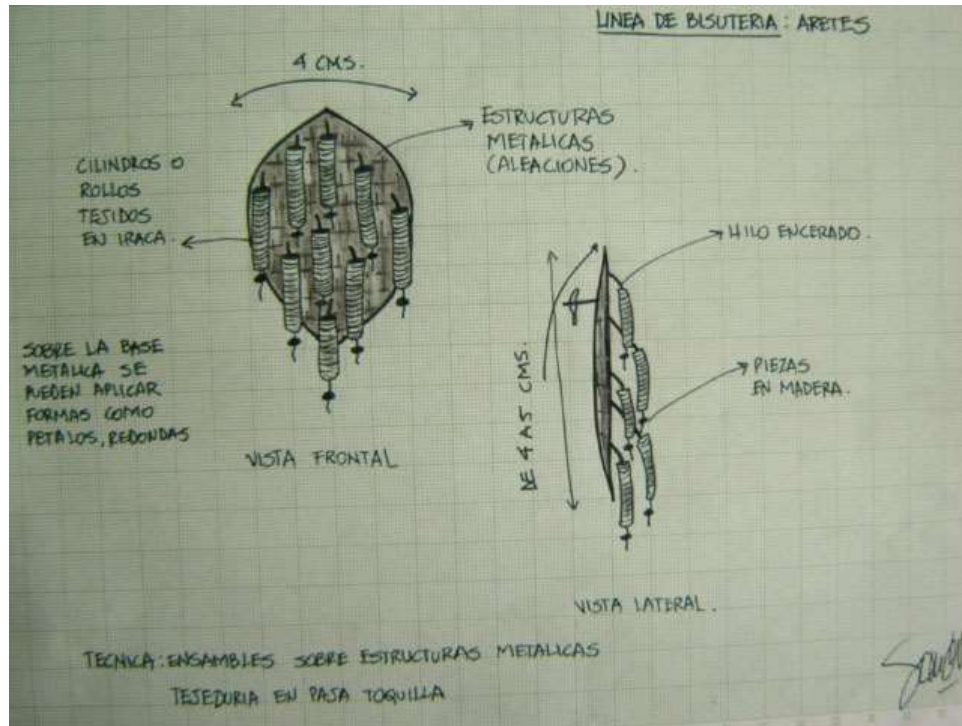 LINEA DE BISUTERIA: ARETES
4 CMS.
ESTRUCTURAS
METALICAS
(ALEACIONES).
CILINDROS O
ROLLOS
TEJIDOS
EN IRACA.
HILO ENCERADO.
SOBRE LA BASE
METALICA SE
PUEDEN APLICAR
FORMAS COMO
PETALOS, REDONDAS
DE 4 A 5 CMS.
PIEZAS
EN MADERA.
VISTA FRONTAL
VISTA LATERAL.
TECNICA: ENSAMBLES SOBRE ESTRUCTURAS METALICAS
TEJEDURIA EN PAJA TOQUILLA